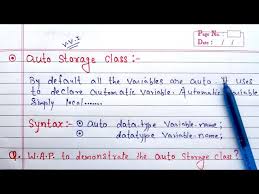 Page No:
Date: / /
V.V.I
Auto Storage class:-
By default all the variables are auto It uses
to declare automatic variable. Automatic variable
Simply local.......
Syntax:- auto data.type variable.name;
datatype variable.name;
Q. W.A.P to demonstrate the auto Storage class?